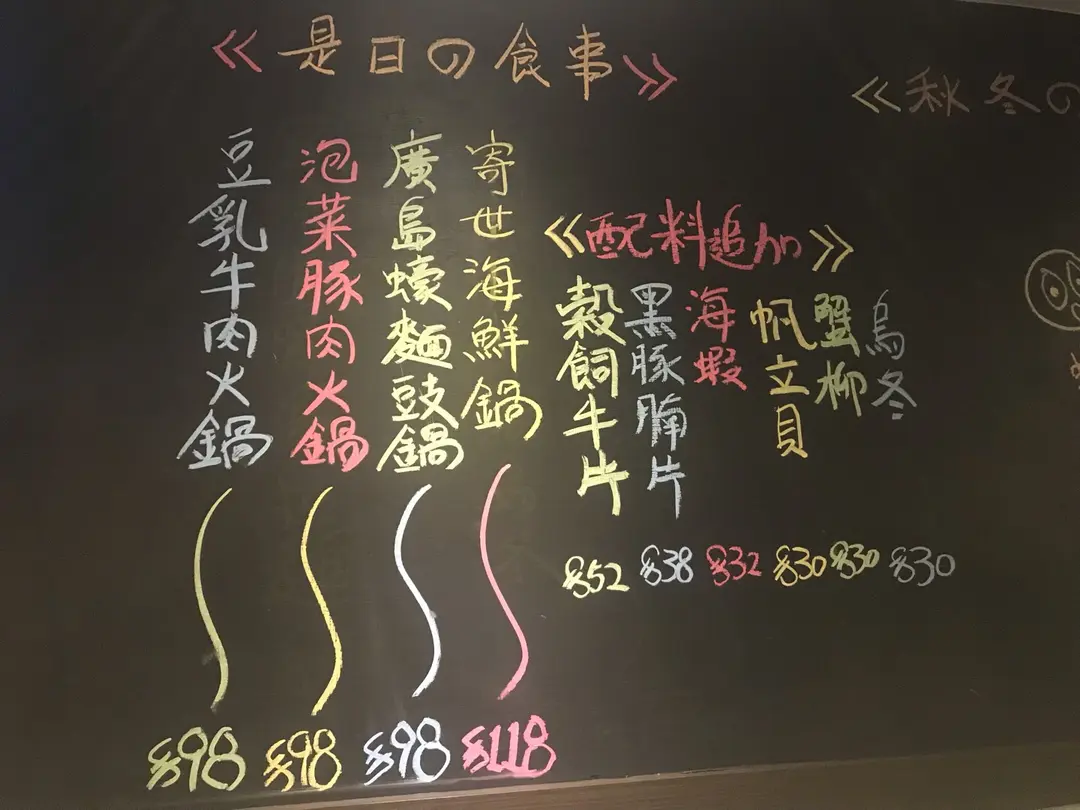 《是日の食事》
豆乳牛肉火鍋
$98
泡菜豚肉火鍋
$98
廣島蠔麵豉鍋
$98
寄世海鮮鍋
$118
《配料追加》
穀飼牛片
$52
黑豚腩片
$38
海蝦
$32
帆立貝
$30
蟹柳
$30
烏冬
$30
《秋冬の